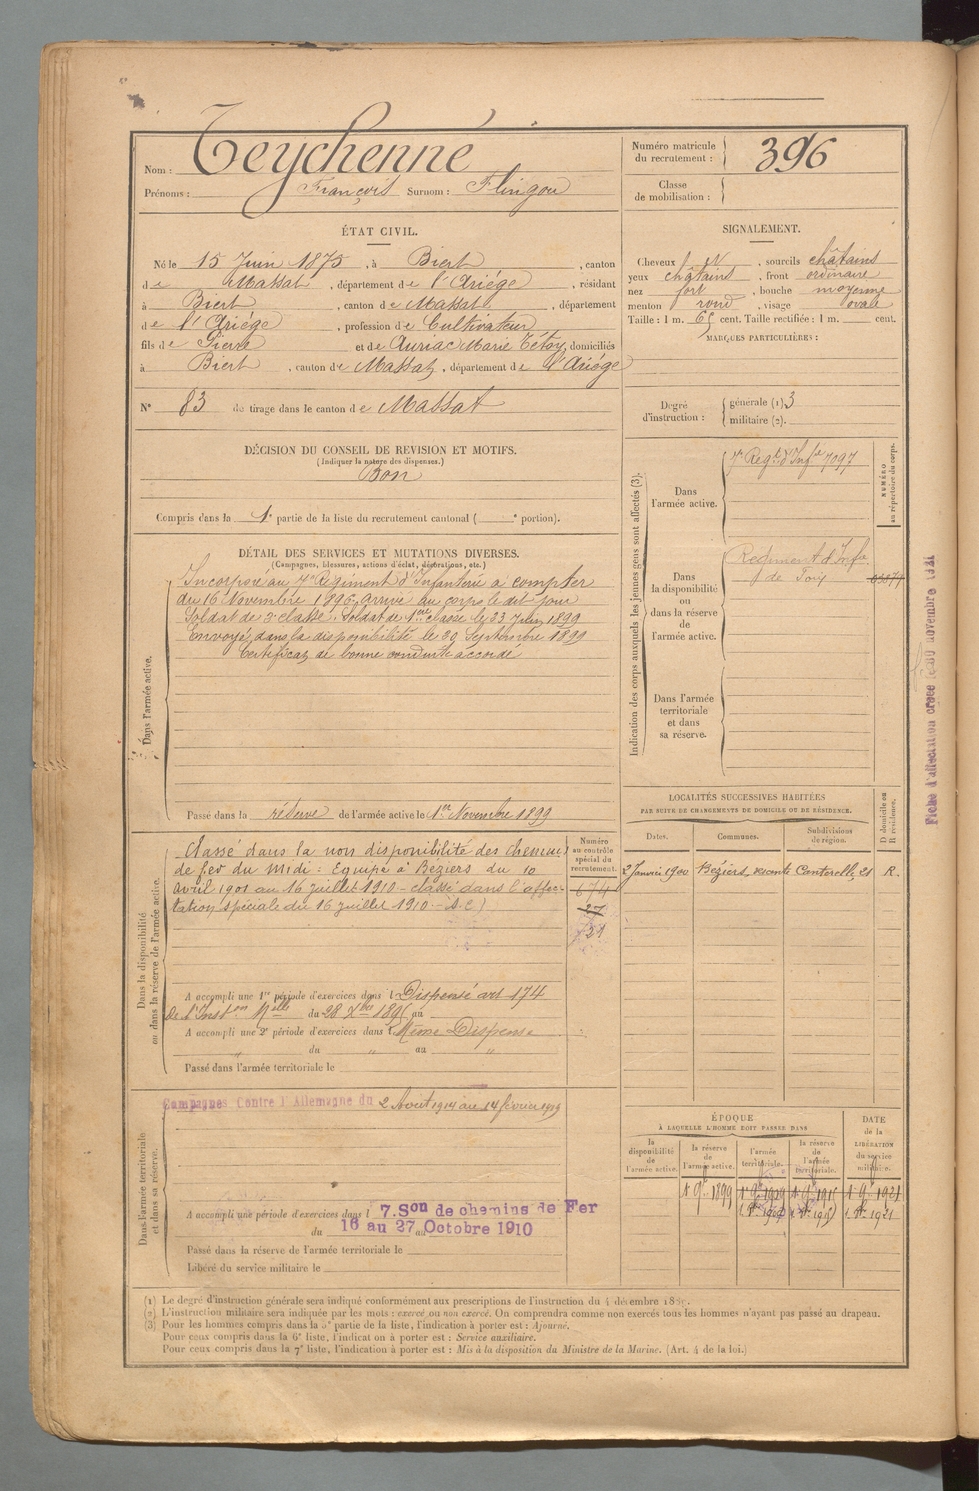 Nom : Teychenné
Prénoms : François Surnom : Flingou
Numéro matricule du recrutement : 396
Classe de mobilisation :
ÉTAT CIVIL.
Né le 15 Juin 1875, à Biert, canton
de Massat, département de l'Ariége, résidant
à Biert, canton de Massat, département
de l'Ariége, profession de Cultivateur
fils de Pierre et de Auriac Marie domiciliés
à Biert, canton de Massat, département de l'Ariége
N° 83 de tirage dans le canton de Massat
SIGNALEMENT.
Cheveux et, sourcils châtains
yeux châtains, front ordinaire
nez fort, bouche moyenne
menton rond, visage ovale
Taille : 1 m. 65 cent. Taille rectifiée : 1 m. cent.
MARQUES PARTICULIÈRES :
Degré d'instruction : générale (1) 3
militaire (2).
DÉCISION DU CONSEIL DE REVISION ET MOTIFS.
(Indiquer la nature des dispenses.)
Bon
Compris dans la 1e partie de la liste du recrutement cantonal ( e portion).
DÉTAIL DES SERVICES ET MUTATIONS DIVERSES.
(Campagnes, blessures, actions d'éclat, décorations, etc.)
Dans l'armée active.
Incorporé au 7e Régiment d'Infanterie à compter
du 16 Novembre 1896, arrivé au corps le dit jour
Soldat de 2e classe. Soldat de 1ère classe le 23 1899
Envoyé dans la disponibilité le 20 Septembre 1899
Certificat de bonne conduite accordé
Passé dans la réserve de l'armée active le 1er Novembre 1899
Indication des corps auxquels les jeunes gens sont affectés (3).
NUMÉRO au répertoire du corps.
Dans l'armée active.
7e Regt d'Infie 7097
Dans la disponibilité ou dans la réserve de l'armée active.
Regiment d'Infie
de Foix
Dans l'armée territoriale et dans sa réserve.
Fiche d'affectation créée le 30 novembre 1921
LOCALITÉS SUCCESSIVES HABITÉES
PAR SUITE DE CHANGEMENTS DE DOMICILE OU DE RÉSIDENCE.
Dates. Communes. Subdivisions de région. D domicile ou R résidence.
2 Janvier 1900 Béziers, 21 R.
Dans la disponibilité ou dans la réserve de l'armée active.
Numéro au contrôle spécial du recrutement.
Classé dans la non disponibilité des chemins
de fer du Midi : Equipé à Béziers du 10
avril 1901 au 16 juillet 1910 - classé dans l'affec-
tation spéciale du 16 juillet 1910 -
674
27
21
A accompli une 1re période d'exercices dans l Dispensé art 174
de l'Inston Melle du 28 Xbre 1895 au
A accompli une 2e période d'exercices dans l Même Dispense
du " au "
Passé dans l'armée territoriale le
Dans l'armée territoriale et dans sa réserve.
Campagnes Contre l'Allemagne du 2 Aout 1914 au 14 février 1919
A accompli une période d'exercices dans l 7.Son de chemins de Fer
du 16 au 27 Octobre 1910
Passé dans la réserve de l'armée territoriale le
Libéré du service militaire le
ÉPOQUE
À LAQUELLE L'HOMME DOIT PASSER DANS
la disponibilité de l'armée active. la réserve de l'armée active. l'armée territoriale. la réserve de l'armée territoriale.
DATE de la LIBÉRATION du service militaire.
(1) Le degré d'instruction générale sera indiqué conformément aux prescriptions de l'instruction du 4 décembre
(2) L'instruction militaire sera indiquée par les mots : exercé ou non exercé. On comprendra comme non exercés tous les hommes n'ayant pas passé au drapeau.
(3) Pour les hommes compris dans la 5e partie de la liste, l'indication à porter est : Ajourné.
Pour ceux compris dans la 6e liste, l'indication à porter est : Service auxiliaire.
Pour ceux compris dans la 7e liste, l'indication à porter est : Mis à la disposition du Ministre de la Marine. (Art. 4 de la loi.)